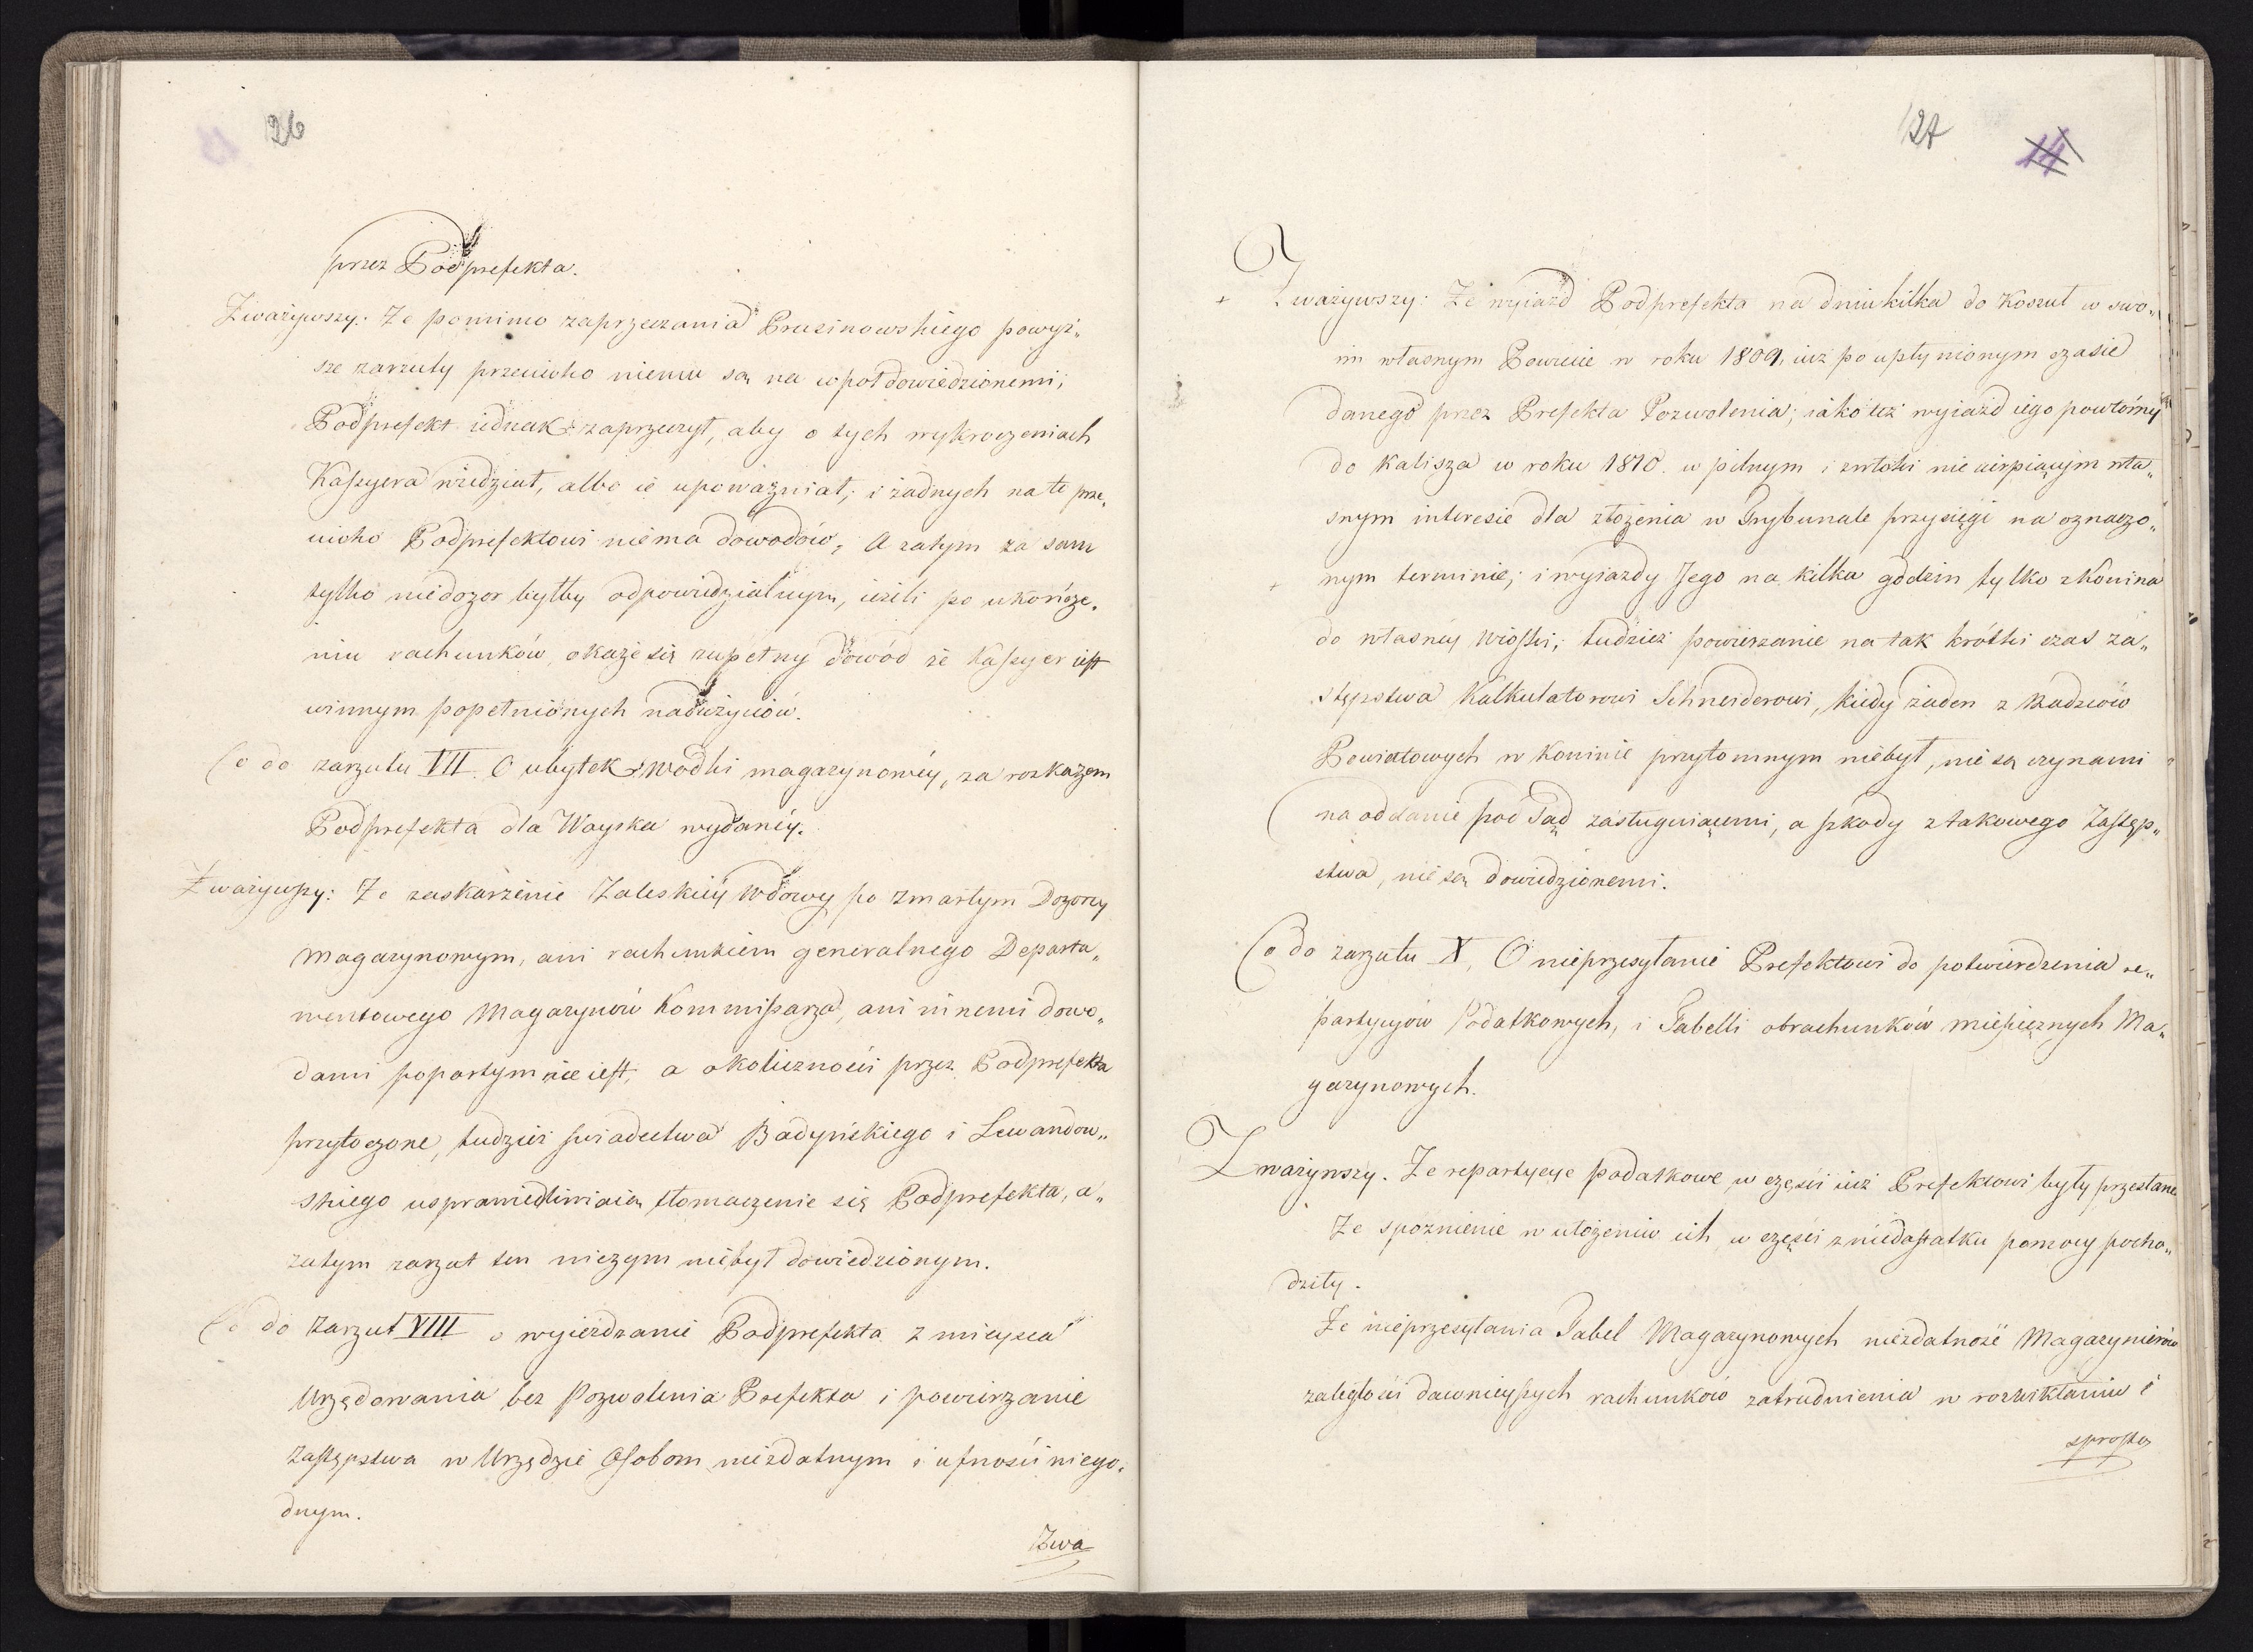 26
przez Podprefekta.
Zważywszy: Że pomimo zaprzeczania Prusinowskiego powyż„
sze zarzuty przeciwko niemu są na wpół dowiedzionemi;
Podprefekt iednak zaprzeczył, aby o tych wykroczeniach
Kassyera wiedział, albo ie upoważniał; i żadnych na to prze„
ciwko Podprefektowi niema dowodów; A zatym za sam
tylko niedozor byłby odpowiedzialnym, ieżeli po ukończe„
niu rachunków, okaże się zupełny dowód że Kassyer iest
winnym popełnionych nadużyciów.
Co do zarzutu VII. O ubytek wodki magazynowéy, za rozkazem
Podprefekta dla Woyska wydanéy.
Zważywszy: Że zaskarżenie Zaleskiéy Wdowy po zmarłym Dozorcy
Magazynowym, ani rachunkiem generalnego Departa„
mentowego Magazynów Kommissarza, ani innemi dowo„
dami popartym nie iest, a okoliczności przez Podprefekta
przytoczone, tudzież swiadectwa Badyńskiego i Lewandow„
skiego usprawiedliwiaią tłomaczenie się Podprefekta, a„
zatym zarzut ten niczym niebył dowiedzionym.
Co do Zarzut VIII o wyieżdzanie Podprefekta z mieysca
Urzędowania bez Pozwolenia Prefekta i powierzanie
Zastępstwa w Urzędzie Osobom niezdatnym i ufności niego„
dnym.
Zwa
127
14
Zważywszy: Że wyiazd Podprefekta na dni kilka do Koszut w swo„
im własnym Powiecie w roku 1809, iuż po upłynionym czasie
danego przez Prefekta Pozwolenia; iako też wyiazd iego powtórny
do Kalisza w roku 1810. w pilnym i zwłoki nie cierpiącym wła„
snym interesie dla złożenia w Trybunale przysięgi na oznaczo„
nym terminie; i wyiazdy Jego na kilka godzin tylko z Konina
do własnéy wioski; tudzież powierzanie na tak krótki czas za„
stępstwa Kalkulatorowi Schneiderowi, kiedy żaden z Radzców
Powiatowych w Koninie przytomnym niebył, nie są czynami
na oddanie pod Sąd zasługuiącemi, a szkody z takowego Zastęp„
stwa, nie są dowiedzionemi.
Co do zarzutu X. O nieprzesyłanie Prefektowi do potwierdzenia re„
partycyów Podatkowych, i Tabelli obrachunków miesięcznych Ma„
gazynowych.
Zważywszy. Że repartycye podatkowe w części iuż Prefektowi były przesłane
Że spoznienie w ułożeniu ich w części z niedostatku pomocy pocho„
dziły.
Że nieprzesyłania Tabel Magazynowych niezdatność Magazynierów
zaległości dawnieyszych rachunków zatrudnienia w rozwikłaniu i
sprosto